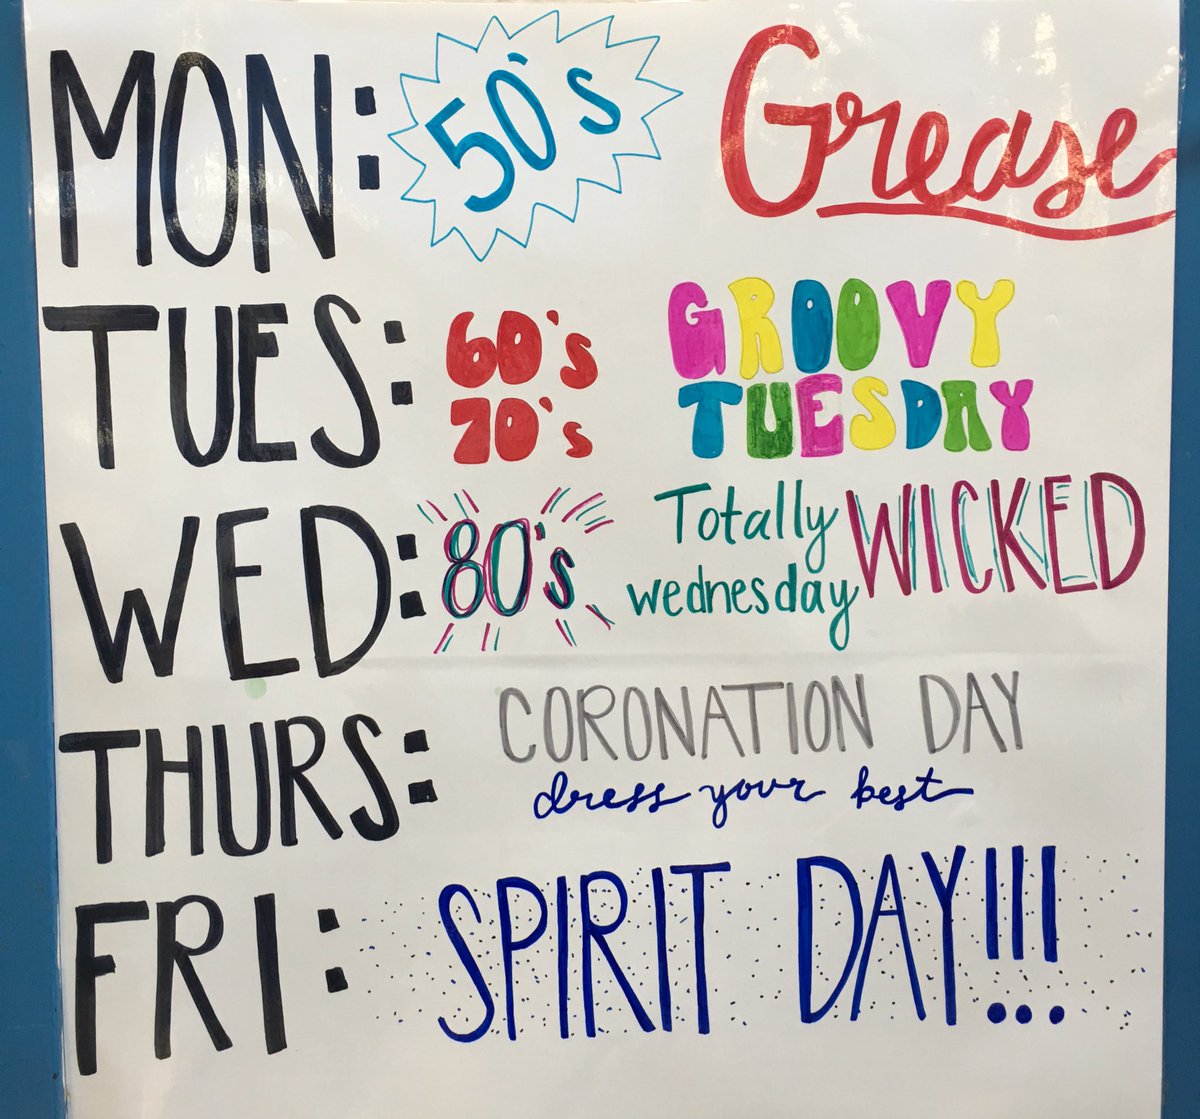 MON: 50's Grease
TUES: 60's 70's GROOVY TUESDAY
WED: 80's Totally wednesday WICKED
THURS: CORONATION DAY
dress your best
FRI: SPIRIT DAY!!!